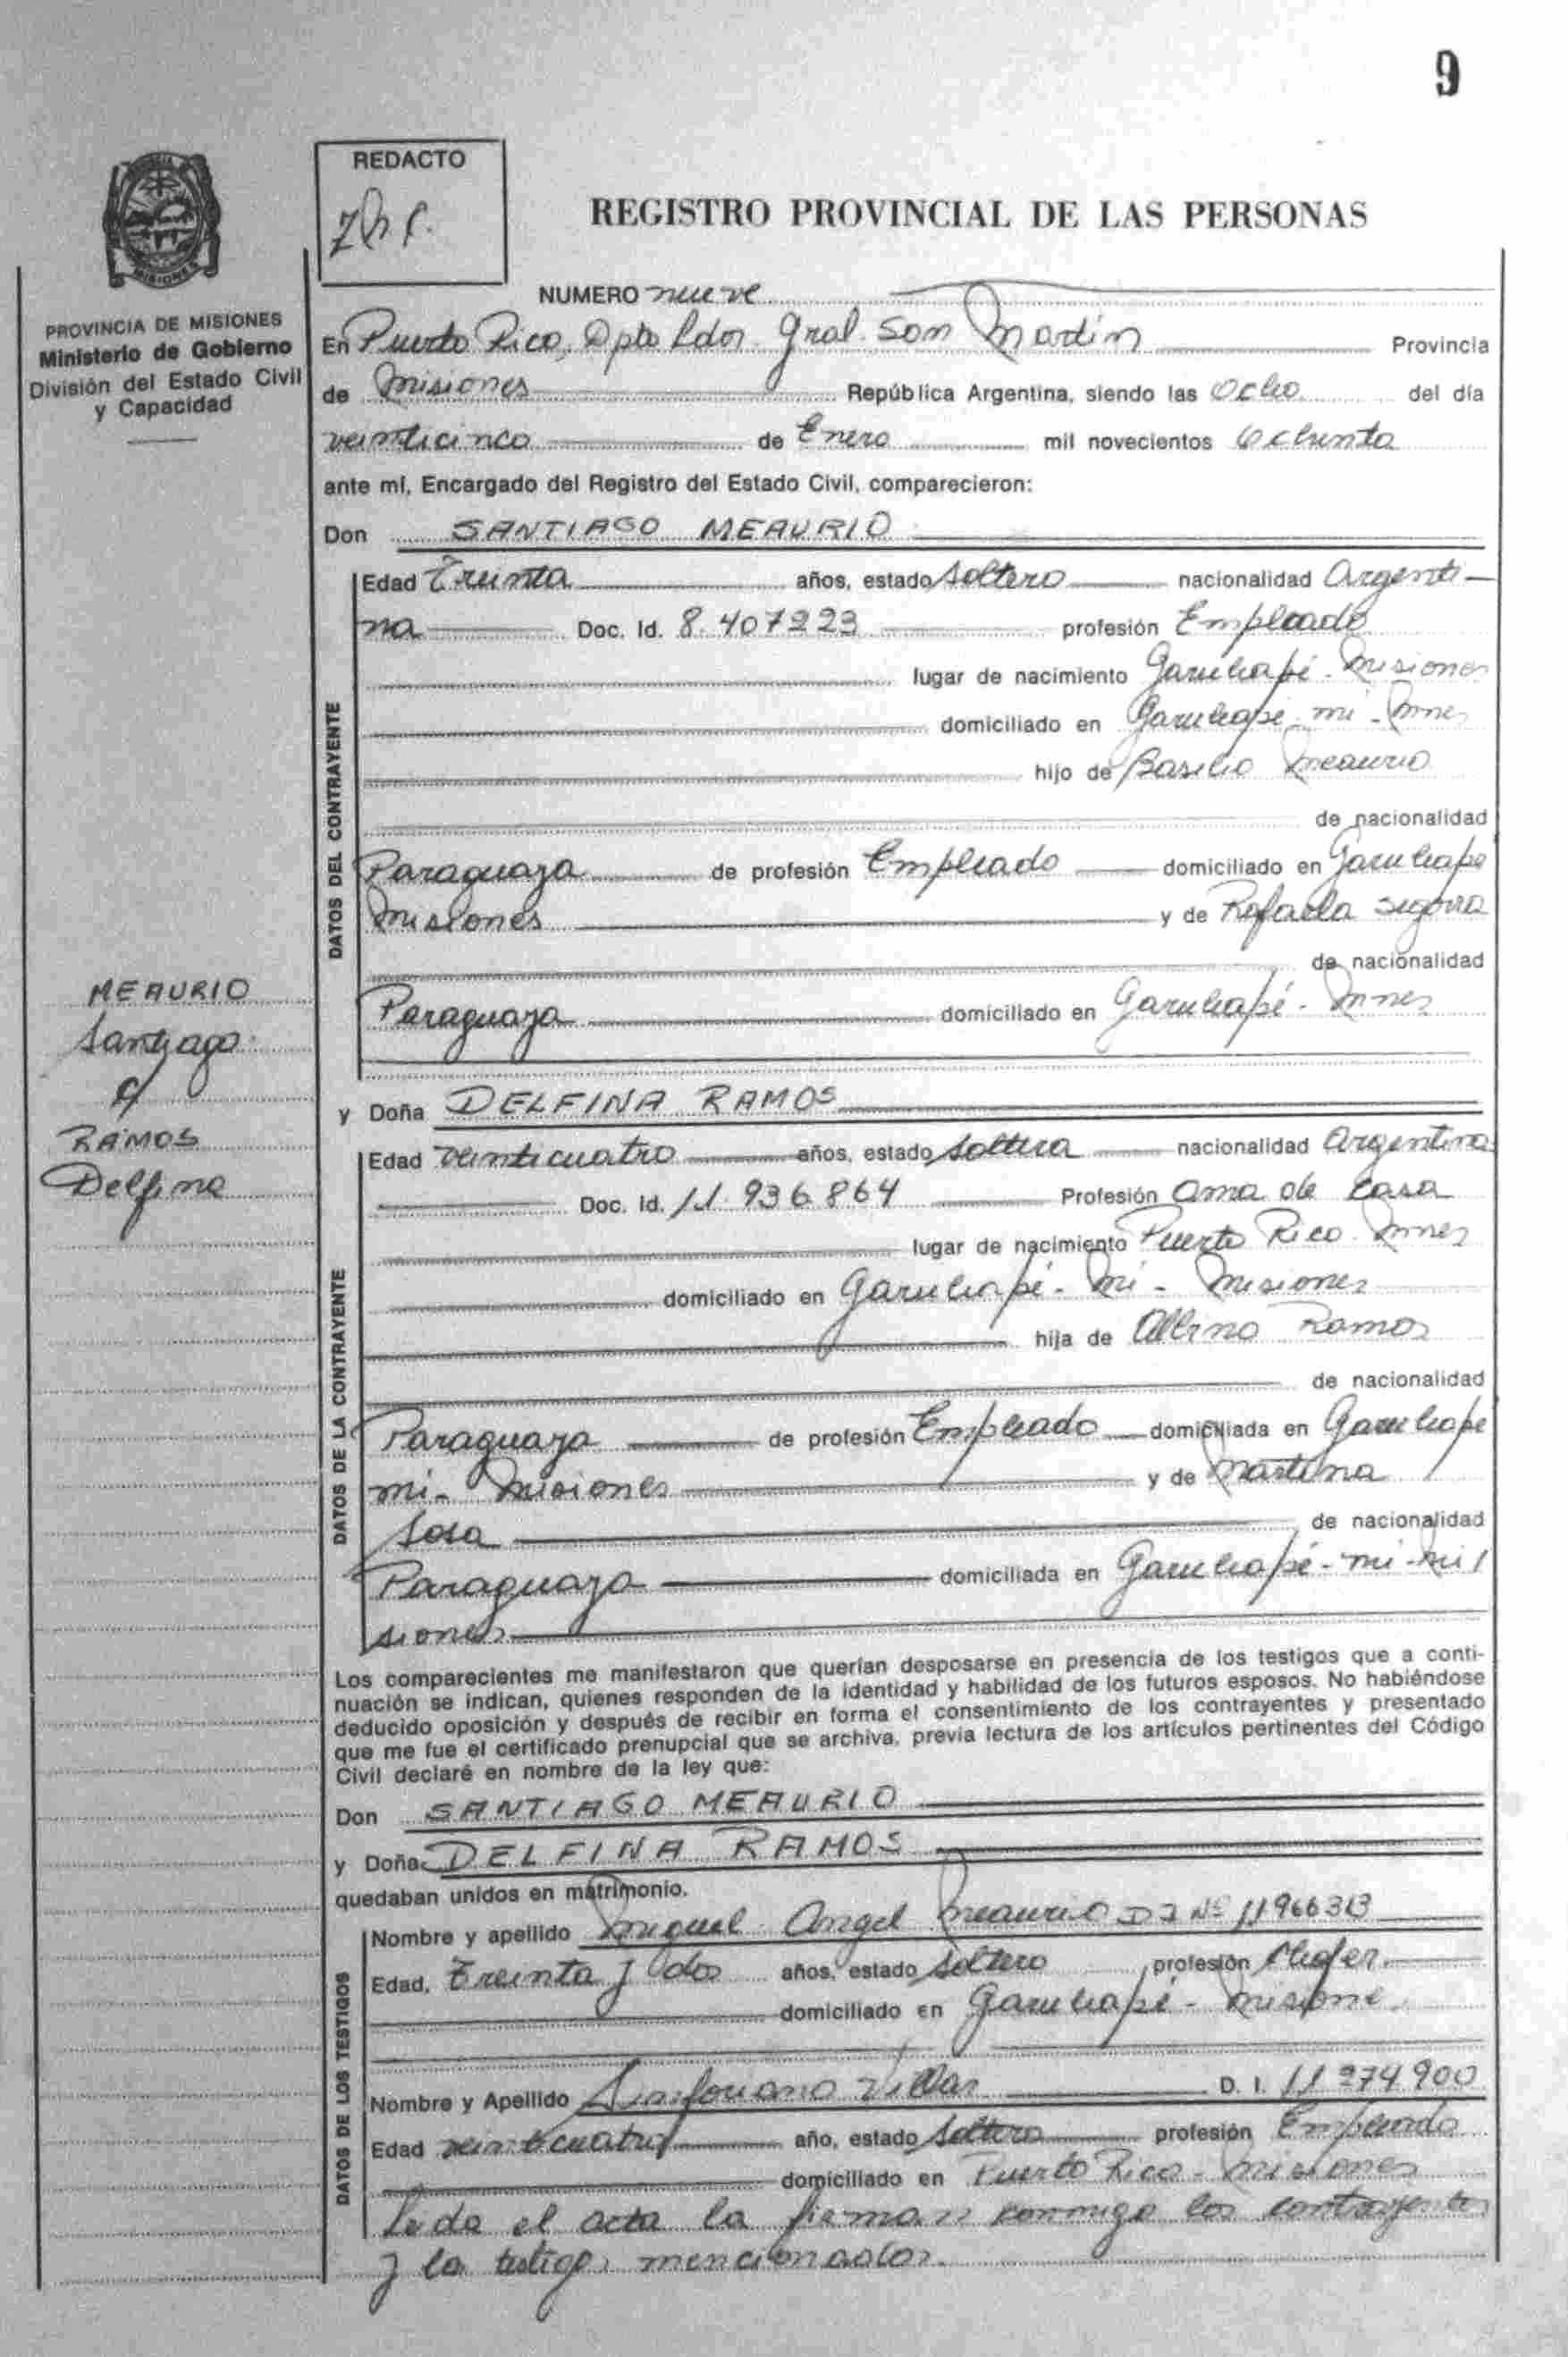 9
REDACTO
REGISTRO PROVINCIAL DE LAS PERSONAS
MISIONES
PROVINCIA DE MISIONES
Ministerio de Gobierno
División del Estado Civil
y Capacidad
MEAURIO
Santiago
RAMOS
Delfina
NUMERO nueve
En Puerto Rico, Dpto Ldor. Gral. San Martín Provincia
de Misiones República Argentina, siendo las Ocho del día
veinticinco de Enero mil novecientos Ochenta
ante mí, Encargado del Registro del Estado Civil, comparecieron:
Don SANTIAGO MEAURIO
DATOS DEL CONTRAYENTE
Edad Treinta años, estado soltero nacionalidad Argenti-
na Doc. Id. 8.407223 profesión Empleado
lugar de nacimiento Garuhapé - Misiones
domiciliado en Garuhape - mi - Mnes
hijo de Basilio Meaurio
de nacionalidad
Paraguaya de profesión Empleado domiciliado en Garuhape
Misiones y de Rafaela Segovia
de nacionalidad
Paraguaya domiciliado en Garuhapé - Mnes
y Doña DELFINA RAMOS
DATOS DE LA CONTRAYENTE
Edad veinticuatro años, estado soltera nacionalidad Argentina
Doc. Id. 11.936.864 Profesión Ama de Casa
lugar de nacimiento Puerto Rico Mnes
domiciliado en Garuhapé - Mi - Misiones
hija de Albino Ramos
de nacionalidad
Paraguaya de profesión Empleado domiciliada en Garuhape
mi - Misiones y de Martina
Sosa de nacionalidad
Paraguaya domiciliada en Garuhapé - mi - Mi
siones
Los comparecientes me manifestaron que querían desposarse en presencia de los testigos que a conti-
nuación se indican, quienes responden de la identidad y habilidad de los futuros esposos. No habiéndose
deducido oposición y después de recibir en forma el consentimiento de los contrayentes y presentado
que me fue el certificado prenupcial que se archiva, previa lectura de los artículos pertinentes del Código
Civil declaré en nombre de la ley que:
Don SANTIAGO MEAURIO
y Doña DELFINA RAMOS
quedaban unidos en matrimonio.
DATOS DE LOS TESTIGOS
Nombre y apellido Miguel Angel Meaurio DI Nº 11966313
Edad, Treinta y dos años, estado soltero profesión Chofer
domiciliado en Garuhapé - Misiones
Nombre y Apellido Villar D. I. 11 274 900
Edad veinticuatro año, estado soltero profesión Empleado
domiciliado en Puerto Rico - Misiones
Leída el acta la firman conmigo los contrayentes
y los testigos mencionados.